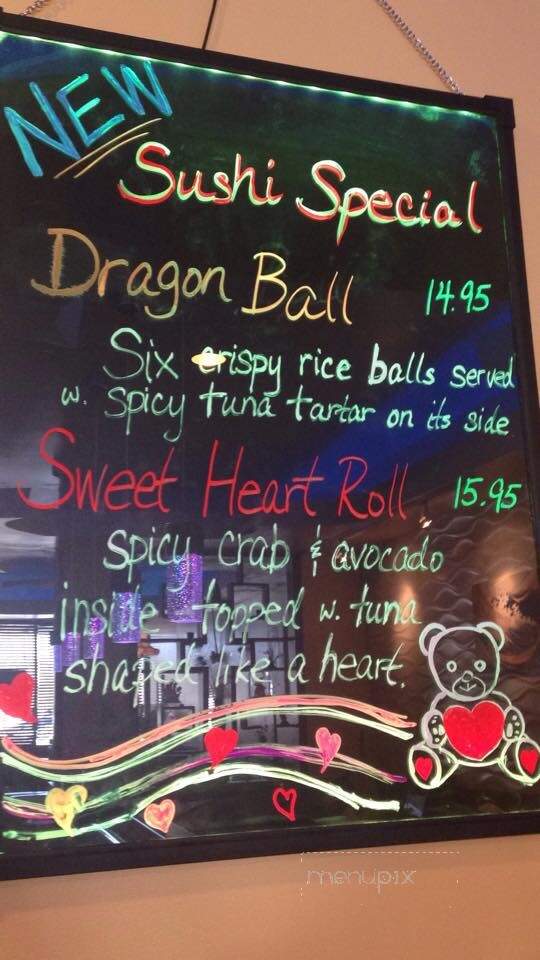 NEW
Sushi Special
Dragon Ball 14.95
Six crispy rice balls served
w. spicy tuna tartar on its side
Sweet Heart Roll 15.95
spicy crab & avocado
inside topped w. tuna
shaped like a heart.
menupix